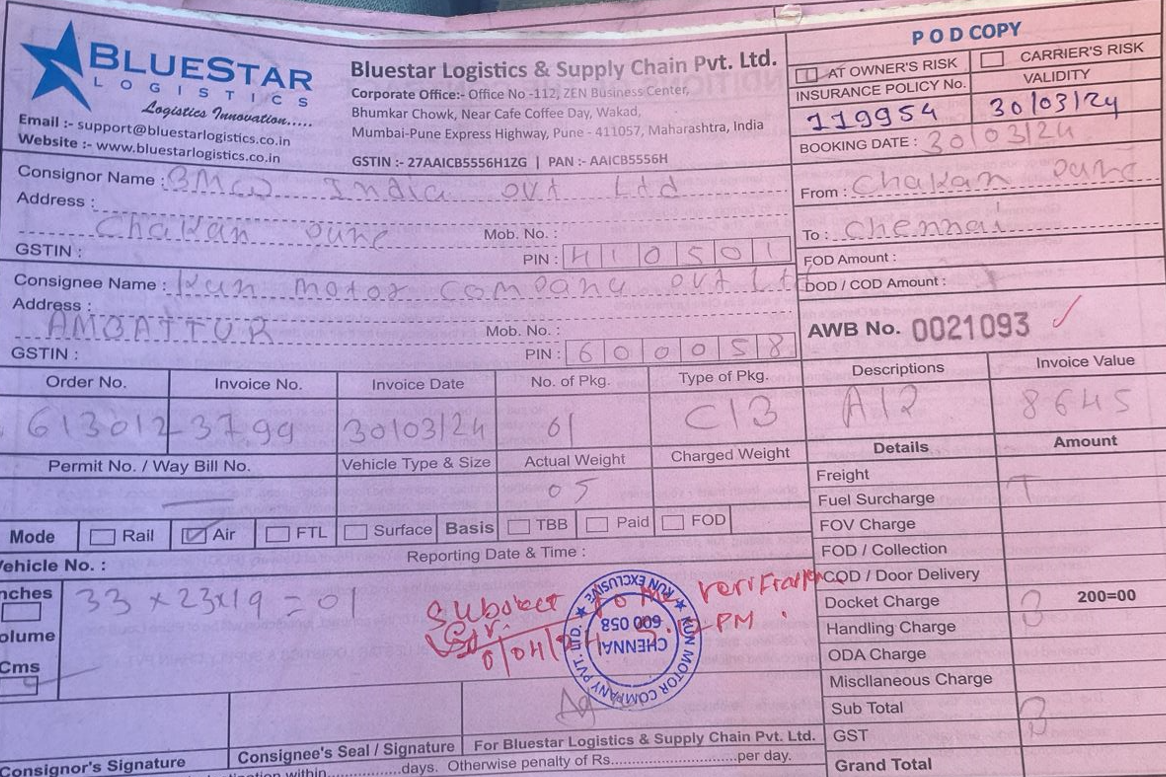 BLUESTAR
LOGISTICS
Logistics Innovation.....
Email :- support@bluestarlogistics.co.in
Website :- www.bluestarlogistics.co.in
Bluestar Logistics & Supply Chain Pvt. Ltd.
Corporate Office:- Office No -112, ZEN Business Center,
Bhumkar Chowk, Near Cafe Coffee Day, Wakad,
Mumbai-Pune Express Highway, Pune - 411057, Maharashtra, India
GSTIN :- 27AAICB5556H1ZG | PAN :- AAICB5556H
POD COPY
AT OWNER'S RISK CARRIER'S RISK
INSURANCE POLICY No. VALIDITY
119954 30/03/24
BOOKING DATE : 30/03/24
Consignor Name : BMW India pvt Ltd
Address :
Chakan pune Mob. No. :
GSTIN : PIN : 410501
From : Chakan pune
To : Chennai
FOD Amount :
DOD / COD Amount :
Consignee Name : Kun motor company pvt Ltd
Address :
AMBATTUR Mob. No. :
GSTIN : PIN : 600058
AWB No. 0021093
Order No. Invoice No. Invoice Date No. of Pkg. Type of Pkg. Descriptions Invoice Value
613012 3799 30/03/24 01 C13 8645
Permit No. / Way Bill No. Vehicle Type & Size Actual Weight Charged Weight Details Amount
05
Freight
Fuel Surcharge
FOV Charge
FOD / Collection
COD / Door Delivery
Docket Charge 200=00
Handling Charge
ODA Charge
Miscllaneous Charge
Sub Total
GST
Grand Total
Mode Rail Air FTL Surface Basis TBB Paid FOD
Vehicle No. : Reporting Date & Time :
nches
olume
Cms
33 x 23x19 = 01
Subject to verification
PM
KUN EXCLUSIVE
KUN MOTOR COMPANY PVT. LTD.
CHENNAI
600 058
Consignor's Signature Consignee's Seal / Signature For Bluestar Logistics & Supply Chain Pvt. Ltd.
within..................days. Otherwise penalty of Rs...............................per day.